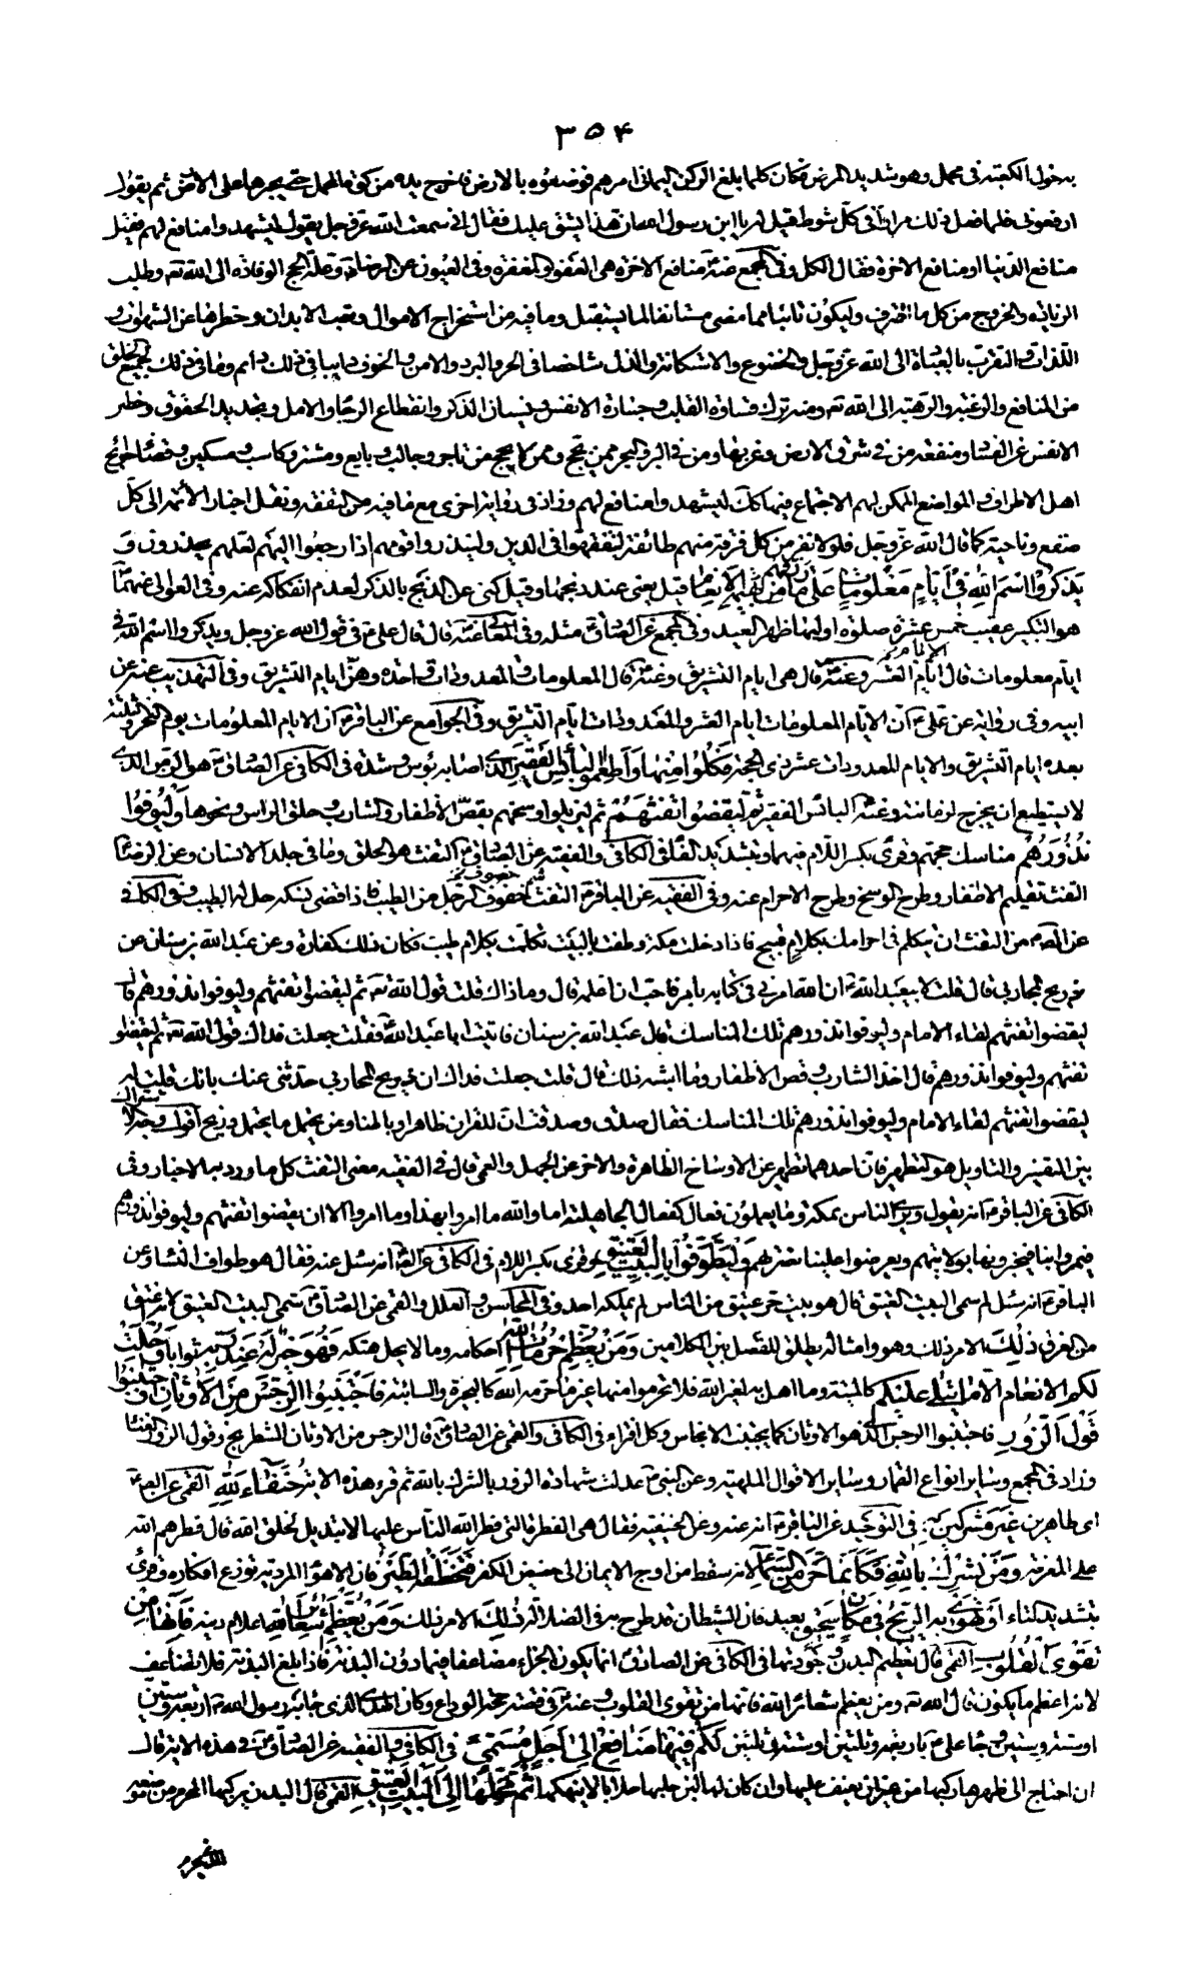 ٣٥٤
بدخول الكعبة فى محمل وهو شديد المرض فكان كلما بلغ الركن اليمانى امرهم فوضعوه بالارض فاخرج يده من كوة المحمل حتى يجرها على الارض ثم يقول
ارفعونى فلما فعل ذلك مرارا فى كل شوط قيل له يا ابن رسول الله ان هذا يشق عليك فقال انى سمعت الله عز وجل يقول ليشهدوا منافع لهم فقيل
منافع الدنيا او منافع الاخرة فقال الكل وفى المجمع عنه منافع الاخرة هى العفو والمغفرة وفى العيون عن الرضا وعلة الحج الوفادة الى الله تعه وطلب
الزيادة والخروج من كل ما اقترف وليكون تائبا مما مضى مستانفا لما يستقبل وما فيه من استخراج الاموال وتعب الابدان وحظرها عن الشهوات و
اللذات والتقرب بالعبادة الى الله عز وجل والخضوع والاستكانة والذل شاخصا فى الحر والبرد والامن والخوف دايبا فى ذلك دائم وما فى ذلك لجميع الخلق
من المنافع والرغبة والرهبة الى الله تعه ومنه ترك قساوة القلب وجسارة الانفس ونسيان الذكر وانقطاع الرجاء والامل وتجديد الحقوق وحظر
الانفس عن الفساد ومنفعة من فى شرق الارض وغربها ومن فى البر والبحر ممن يحج وممن لا يحج من تاجر وجالب وبايع ومشتر وكاسب ومسكين وقضاء حوائج
اهل الاطراف والمواضع الممكن لهم الاجتماع فيها كذلك ليشهدوا منافع لهم وزاد فى رواية اخرى مع ما فيه من التفقه ونقل اخبار الائمة الى كل
صقع وناحية كما قال الله عز وجل فلولا نفر من كل فرقة منهم طائفة ليتفقهوا فى الدين ولينذروا قومهم اذا رجعوا اليهم لعلهم يحذرون وَ
يَذْكُرُوا اسْمَ اللهِ فِي أَيَّامٍ مَعْلُومَاتٍ عَلَى مَا رَزَقَهُمْ مِنْ بَهِيمَةِ الْأَنْعَامِ قيل يعنى عند ذبحها وقيل كنى عن الذبح بالذكر لعدم انفكاكه عنه وفى العوالى عنهما
هو التكبير عقيب خمس عشرة صلوة اولها ظهر العيد وفى المجمع عن الصادق مثله وفى المعانى عنه قال قال على فى قول الله عز وجل ويذكروا اسم الله فى
ايام معلومات قال ايام العشر وعنه قال هى ايام التشريق وعنه قال المعلومات والمعدودات واحدة وهن ايام التشريق وفى التهذيب عنه عن
ابيه وفى رواية عن على ان الايام المعلومات ايام العشر والمعدودات ايام التشريق وفى الجوامع عن الباقر ان الايام المعلومات يوم النحر وثلثة
بعده ايام التشريق والايام المعدودات عشر ذى الحجة فَكُلُوا مِنْهَا وَأَطْعِمُوا الْبَائِسَ الْفَقِيرَ الذى اصابه بؤس وشدة فى الكافى عن الصادق هو الزمن الذى
لا يستطيع ان يخرج لزمانته وعنه البائس الفقير ثُمَّ لْيَقْضُوا تَفَثَهُمْ ثم ليزيلوا وسخهم بقص الاظفار والشارب وحلق الراس ونحوها وَلْيُوفُوا
نُذُورَهُمْ مناسك حجتهم وقرئ بكسر اللام فيهما وبتشديد الفاء فى الكافى والفقيه عن الصادق التفث هو الحلق وما فى جلد الانسان وعن الرضا
التفث تقليم الاظفار وطرح الوسخ وطرح الاحرام عنه وفى الفقيه عن الباقر التفث حفوف الرجل من الطيب فاذا قضى نسكه حل له الطيب وفى الكافى
عن الصه من التفث ان يتكلم فى احرامك بكلام قبيح فاذا دخلت مكة وطفت بالبيت تكلمت بكلام طيب فكان ذلك كفارة وعن عبد الله بن سنان عن
ذريح المحاربى قال قلت لابيعبد الله ان الله امرنى فى كتابه بامر فاحب ان اعلمه قال وما ذاك قلت قول الله تعه ثم ليقضوا تفثهم وليوفوا نذورهم قال
ليقضوا تفثهم لقاء الامام وليوفوا نذورهم تلك المناسك قال عبد الله بن سنان فاتيت ابا عبد الله فقلت جعلت فداك قول الله تعه ثم ليقضوا
تفثهم وليوفوا نذورهم قال اخذ الشارب وقص الاظفار وما اشبه ذلك قال قلت جعلت فداك ان ذريح المحاربى حدثنى عنك بانك قلت له
ليقضوا تفثهم لقاء الامام وليوفوا نذورهم تلك المناسك فقال صدق وصدقت ان للقران ظاهرا وباطنا ومن يحتمل ما يحتمل ذريح اقول وجه الاشتراك
بين التفسير والتاويل هو التطهير فان احدهما تطهير عن الاوساخ الظاهرة والاخر عن الجهل والعمى قال فى الفقيه معنى التفث كل ما ورد به الاخبار وفى
الكافى عن الباقر انه يقول ويرى الناس بمكة وما يعملون فعال كفعال الجاهلية اما والله ما امروا بهذا وما امروا الا ان يقضوا تفثهم وليوفوا نذورهم
فيمروا بنا فيخبرونا بولايتهم ويعرضوا علينا نصرتهم وَلْيَطَّوَّفُوا بِالْبَيْتِ الْعَتِيقِ وقرئ بكسر اللام فى الكافى عن الصه انه سئل عنه فقال هو طواف النساء وعن
الباقر انه سئل لم سمى البيت العتيق قال هو بيت حر عتيق من الناس لم يملكه احد وفى المحاسن والعلل والقمى عن الصادق سمى البيت العتيق لانه اعتق
من الغرق ذٰلِكَ الامر ذلك وهو وامثاله يطلق للفصل بين الكلامين وَمَنْ يُعَظِّمْ حُرُمَاتِ اللهِ احكامه وما لا يحل هتكه فَهُوَ خَيْرٌ لَهُ عِنْدَ رَبِّهِ ثوابا وَأُحِلَّتْ
لَكُمُ الْأَنْعَامُ إِلَّا مَا يُتْلَى عَلَيْكُمْ كالميتة وما اهل به لغير الله فلا تحرموا منها غير ما حرمه الله كالبحيرة والسائبة فَاجْتَنِبُوا الرِّجْسَ مِنَ الْأَوْثَانِ وَاجْتَنِبُوا
قَوْلَ الزُّورِ فاجتنبوا الرجس الذى هو الاوثان كما يجتنب الانجاس وكل افتراء فى الكافى والقمى عن الصادق قال الرجس من الاوثان الشطرنج وقول الزور الغناء
وزاد فى المجمع وساير انواع القمار وساير الاقوال الملهية وعن النبى عدلت شهادة الزور بالشرك بالله ثم قرء هذه الاية حُنَفَاءَ لِلَّهِ القمى عن الصه
اى طاهرين غَيْرَ مُشْرِكِينَ بِهِ فى التوحيد عن الباقر انه عنه وعن الحنيفية فقال هى الفطرة التى فطر الله الناس عليها لا تبديل لخلق الله قال فطرهم الله
على المعرفة وَمَنْ يُشْرِكْ بِاللهِ فَكَأَنَّمَا خَرَّ مِنَ السَّمَاءِ لانه سقط من اوج الايمان الى حضيض الكفر فَتَخْطَفُهُ الطَّيْرُ فان الاهواء المردية توزع افكاره وقرئ
بتشديد الطاء أَوْ تَهْوِي بِهِ الرِّيحُ فِي مَكَانٍ سَحِيقٍ بعيد فان الشيطان قد طرح به فى الضلالة ذٰلِكَ الامر ذلك وَمَنْ يُعَظِّمْ شَعَائِرَ اللهِ اعلام دينه فَإِنَّهَا مِنْ
تَقْوَى الْقُلُوبِ القمى قال تعظيم البدن وجودتها فى الكافى عن الصادق انما يكون الجزاء مضاعفا فيما دون البدنة فاذا بلغ البدنة فلا تضاعف
لانه اعظم ما يكون قال الله تعه ومن يعظم شعائر الله فانها من تقوى القلوب وعنه فى قصة حجة الوداع وكان الهدى الذى جاء به رسول الله اربعة وستين
او ستة وستين وجاء على باربعة وثلثين او ستة وثلثين لَكُمْ فِيهَا مَنَافِعُ إِلَى أَجَلٍ مُسَمًّى فى الكافى والفقيه عن الصادق فى هذه الاية قال
ان احتاج الى ظهرها ركبها من غير ان يعنف عليها وان كان لها لبن حلبها حلابا لا ينهكها ثُمَّ مَحِلُّهَا إِلَى الْبَيْتِ الْعَتِيقِ القمى قال البدن يركبها المحرم من موضعه